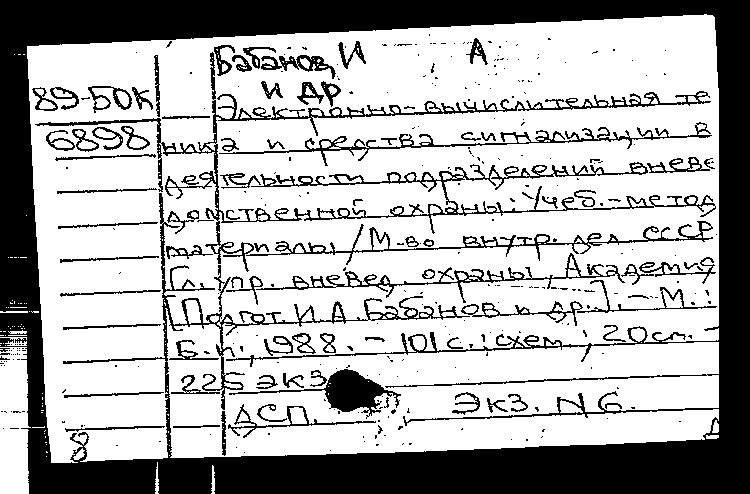 Бабанов, И А
и др.
89-БОК
Электронно-вычислительная те
6898
ника и средства сигнализации в
деятельности подразделений вневе
домственной охраны: Учеб.-метод
материалы / М-во внутр. дел СССР
Гл. упр. вневед. охраны, Академия
[Подгот. И. А. Бабанов и др.]. - М.:
Б. и., 1988. - 101 с.; схем; 20 см. -
225 экз
ДСП. Экз. N6.
8